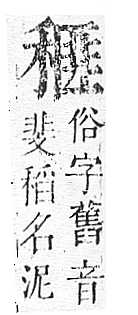 俗字舊音
斐稻名泥